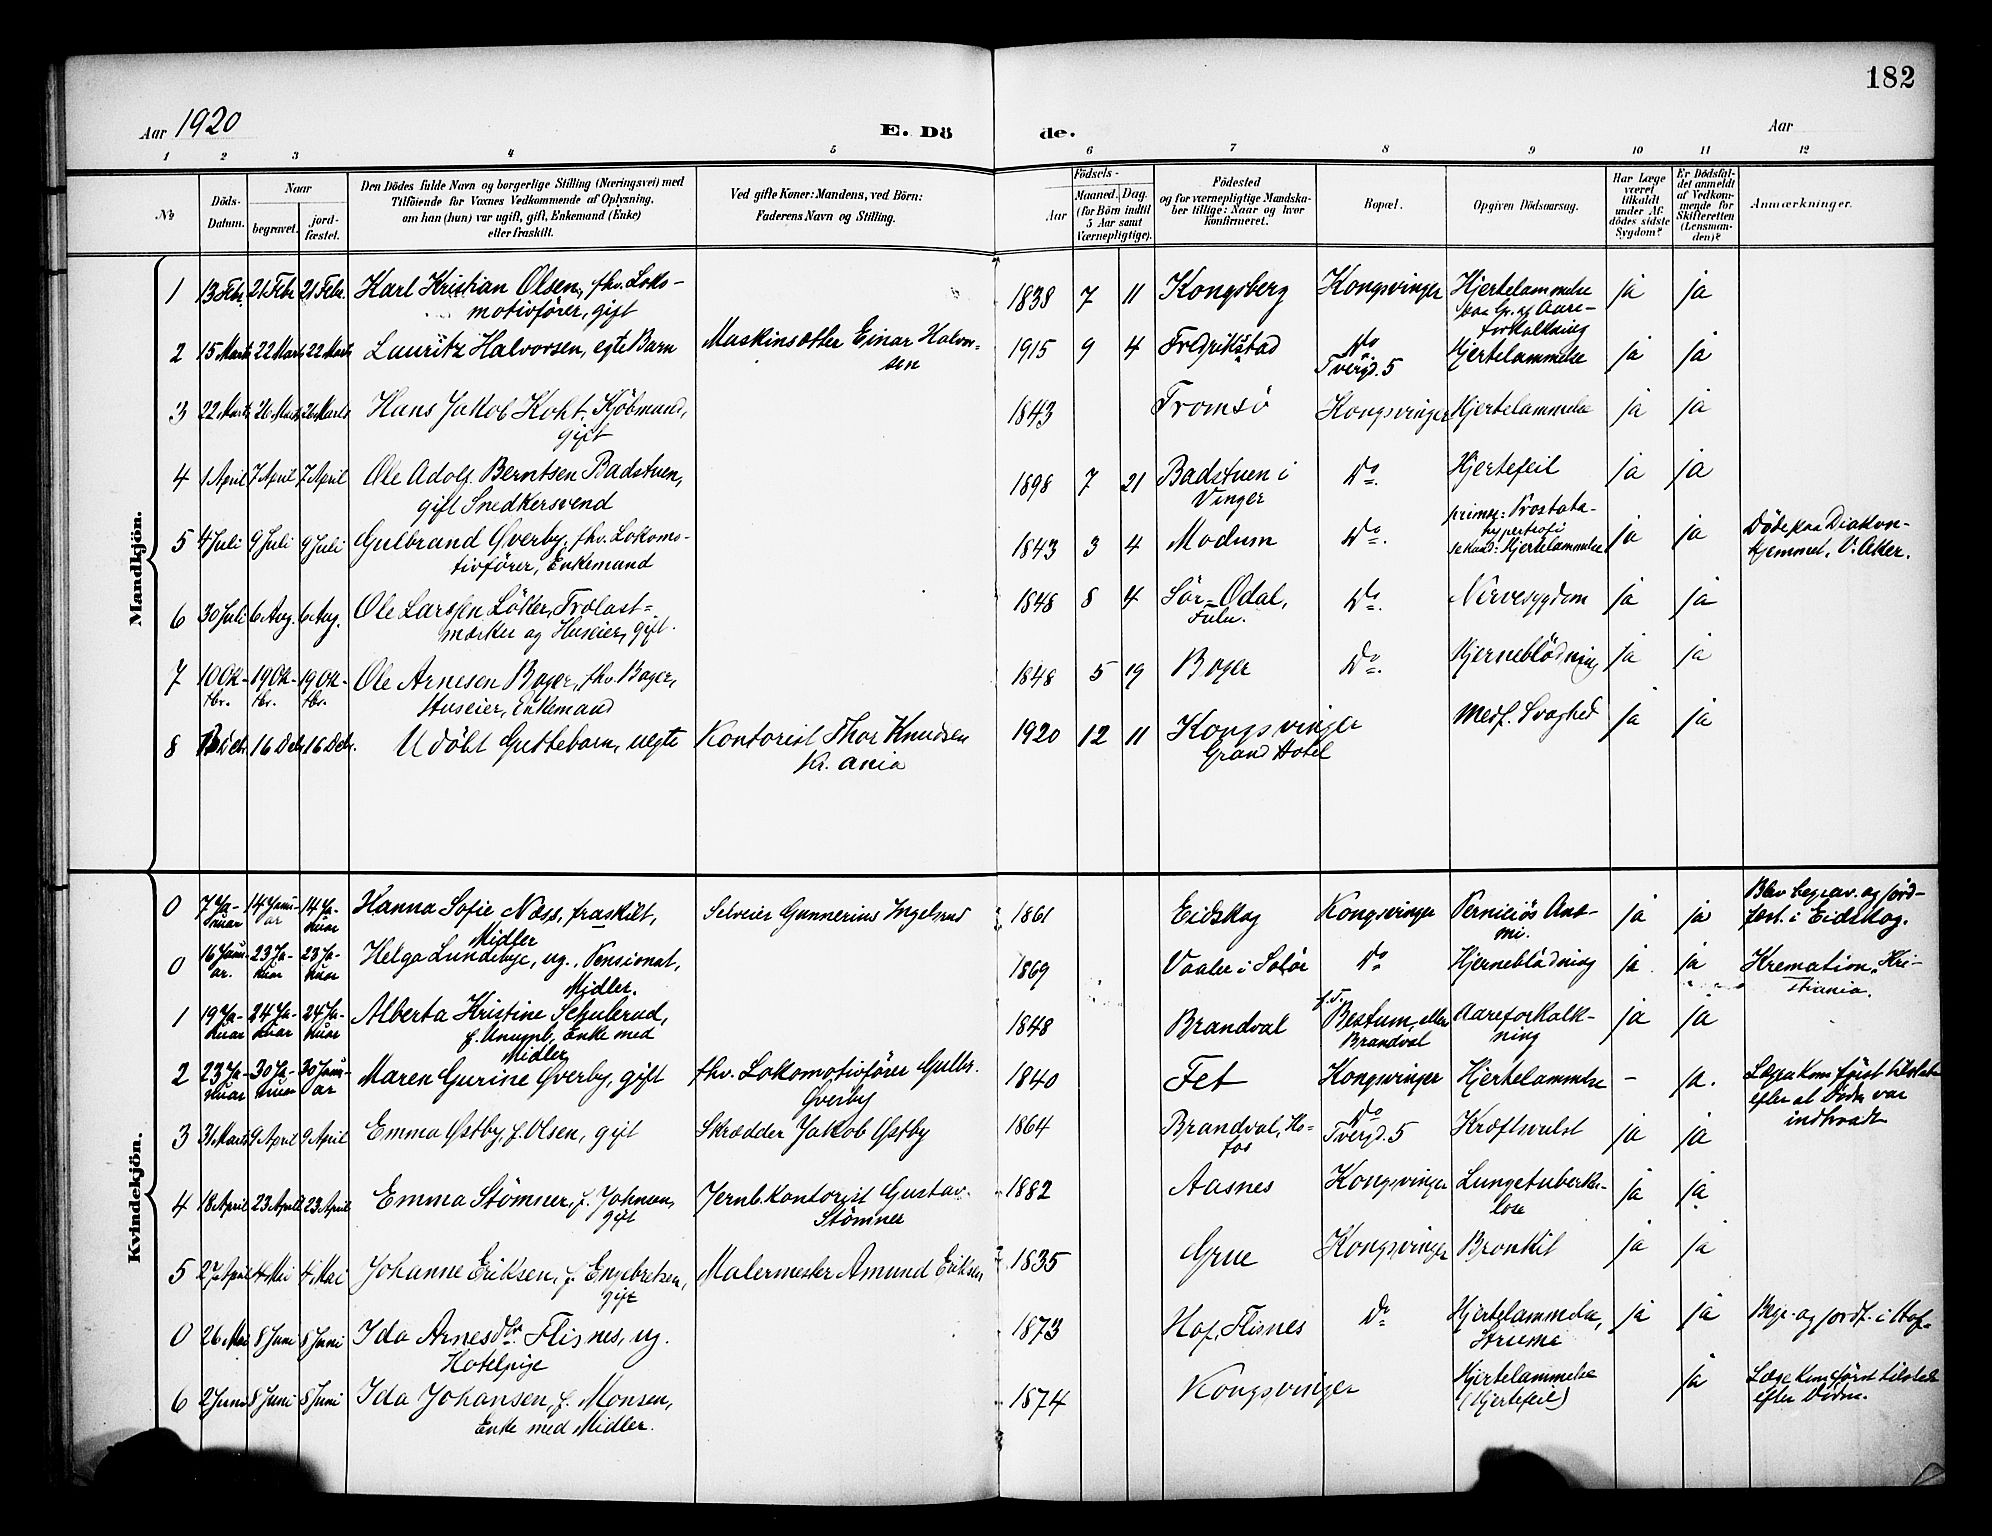 182
Aar 1920 E. Dö de. Aar
1 2 3 4 5 6 7 8 9 10 11 12
№ Döds-Datum. Naar begravet. jordfæstet. Den Dödes fulde Navn og borgerlige Stilling (Næringsvei) med Tilföiende for Voxnes Vedkommende af Oplysning, om han (hun) var ugift, gift, Enkemand (Enke) eller fraskilt. Ved gifte Koner: Mandens, ved Börn: Faderens Navn og Stilling. Födsels- Aar Maaned. Dag. (for Börn indtil 5 Aar samt Værnepligtige). Födested og for værnepligtige Mandskaber tillige: Naar og hvor konfirmeret. Bopæl. Opgiven Dödsaarsag. Har Læge været tilkaldt under Afdödes sidste Sygdom? Er Dödsfaldet anmeldt af Vedkommende for Skifteretten (Lensmanden)? Anmærkninger.
Mandkjön.
1 13 Febr 21 Febr 21 Febr. Karl Kristian Olsen, fhv. Lokomotivförer, gift 1838 7 11 Kongsberg Kongsvinger Hjertelammelse paa Gr. af Aareforkalkning ja ja
2 15 Marts 22 Marts 22 Marts Lauritz Halvorsen, egte Barn Maskinsætter Einar Halvorsen 1915 9 4 Fredrikstad Do Tvergd. 5 Hjertelammelse ja ja
3 22 Marts 26 Marts 26 Marts Hans Jakob Koht, Kjöbmand, gift 1843 Tromsö Kongsvinger Hjertelammelse ja ja
4 1 April 7 April 7 April Ole Adolf Berntsen Badstuen, gift Snedkersvend 1898 7 21 Badstuen i Vinger Do. Hjertefeil ja ja
5 4 Juli 9 Juli 9 Juli Gulbrand Øverby, fhv. Lokomotivförer, Enkemand 1843 3 4 Modum Do. primær: Prostatahypertrofi sekund: Hjertelammelse ja ja Döde paa Diakonhjemmet, V. Aker.
6 30 Juli 6 Aug. 6 Aug. Ole Larsen Löker, Trælastmærker og Huseier, gift. 1848 8 4 Sör-Odal, Fulu. Do. Nervesygdom ja ja
7 10 Oktbr. 19 Oktbr. 19 Oktbr. Ole Arnesen Boger, fhv. Boger, Huseier, Enkemand 1848 5 19 Boger Do. Hjerneblödning ja ja
8 16 Deb. 16 Deb. Udöbt Guttebarn, uegte Kontorist Thor Knudsen Kr.ania 1920 12 11 Kongsvinger Grand Hotel Medf. Svaghed ja ja
Kvindekjön.
0 7 Januar 14 Januar 14 Januar Hanna Sofie Næss, fraskilt, Midler Selveier Gunnerius Ingelsrud 1861 Eidskog Kongsvinger Perniciös Anæmi. ja ja Blev begrav. og jordfæst. i Eidskog.
0 16 Januar. 23 Januar 23 Januar Helga Lundebye, ug., Pensionat, Midler. 1869 Vaaler i Solör Do Hjerneblödning ja ja Kremation, Kristiania.
1 19 Januar 24 Januar 24 Januar Alberta Kristine Schulerud, Enke med Midler 1848 Brandval f.T. Bestum, eller Brandval Aareforkalkning ja ja
2 23 Januar 30 Januar 30 Januar Maren Gurine Øverby, gift fhv. Lokomotivförer Gulbr. Øverby 1840 Fet Kongsvinger Hjertelammelse - ja. Læge kom först tilstede efter at Döden var indtraadt
3 31 Marts 9 April 9 April Emma Østby, f. Olsen, gift Skrædder Jakob Østby 1864 Brandval, Do Tvergd. 5 Kræftsvulst ja ja
4 18 April 23 April 23 April Emma Stömner, f. Johnsen, gift Jernb.kontorist Gustav Stömner 1882 Aasnes Kongsvinger Lungetuberkulose ja ja
5 27 April 4 Mai 4 Mai Johanne Eriksen, f. Engebretsen, gift Malermester Amund Eriksen 1835 Grue Kongsvinger Bronkit ja ja
0 26 Mai 8 Juni 8 Juni Ida Arnesdtr Flisnes, ug. Hotelpige 1873 Hof, Flisnes Do Hjertelammelse, Struma ja ja Begr. og jordf. i Hof.
6 2 Juni 8 Juni 8 Juni Ida Johansen, f. Monsen, Enke med Midler. 1874 Kongsvinger Hjertelammelse (Hjertefeil) ja Læge kom först tilstede efter Döden.